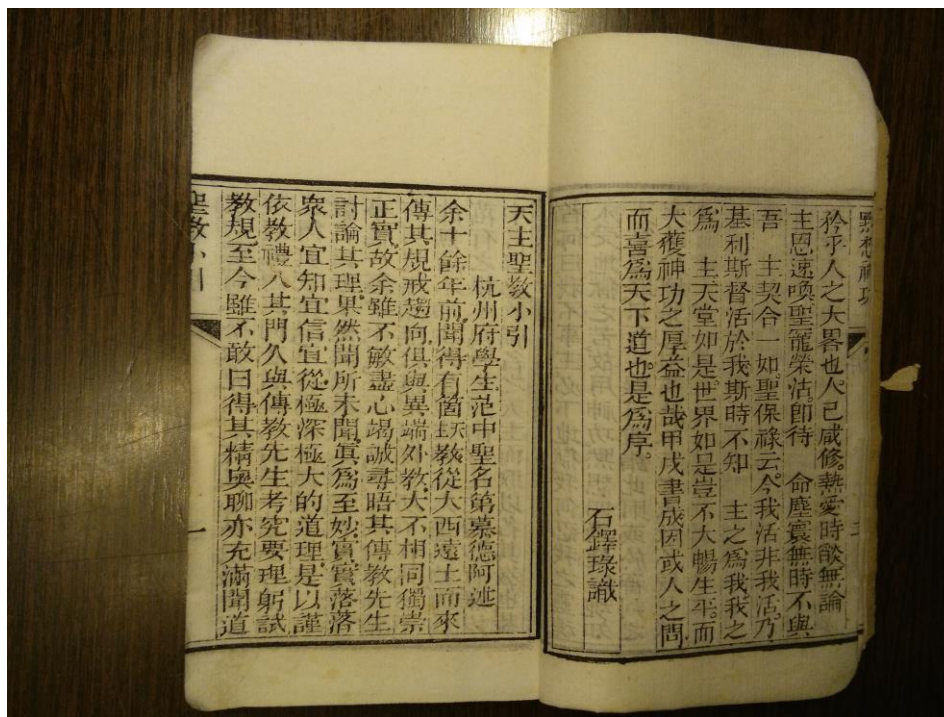 默想神功
矜乎人之大畧也。人己咸修。熱愛時發。無論
主恩速喚。聖寵榮沾。卽待　命塵寰無時不與
吾　主契合一如。聖保祿云。今我活非我活。乃
基利斯督活於我斯時不知　主之爲我我之
爲　主天堂如是。世界如是豈不大暢生平。而
大獲神功之厚益也哉甲戌書成因或人之問
而喜爲天下道也。是爲序。
石鐸琭識
天主聖敎小引
杭州府學生范中聖名第慕德阿述
余十餘年前聞得有箇天主敎從大西遠土而來
傳其規戒趨向俱與異端外敎大不相同獨崇
正實故余雖不敏盡心竭誠尋晤其傳敎先生
討論其理果然聞所未聞眞爲至妙實實落落
衆人宜知宜信宜從極深極大的道理是以謹
依敎禮入其門久與傳敎先生考究要理躬試
敎規至今雖不敢曰得其精奧聊亦充滿聞道
聖敎小引
一